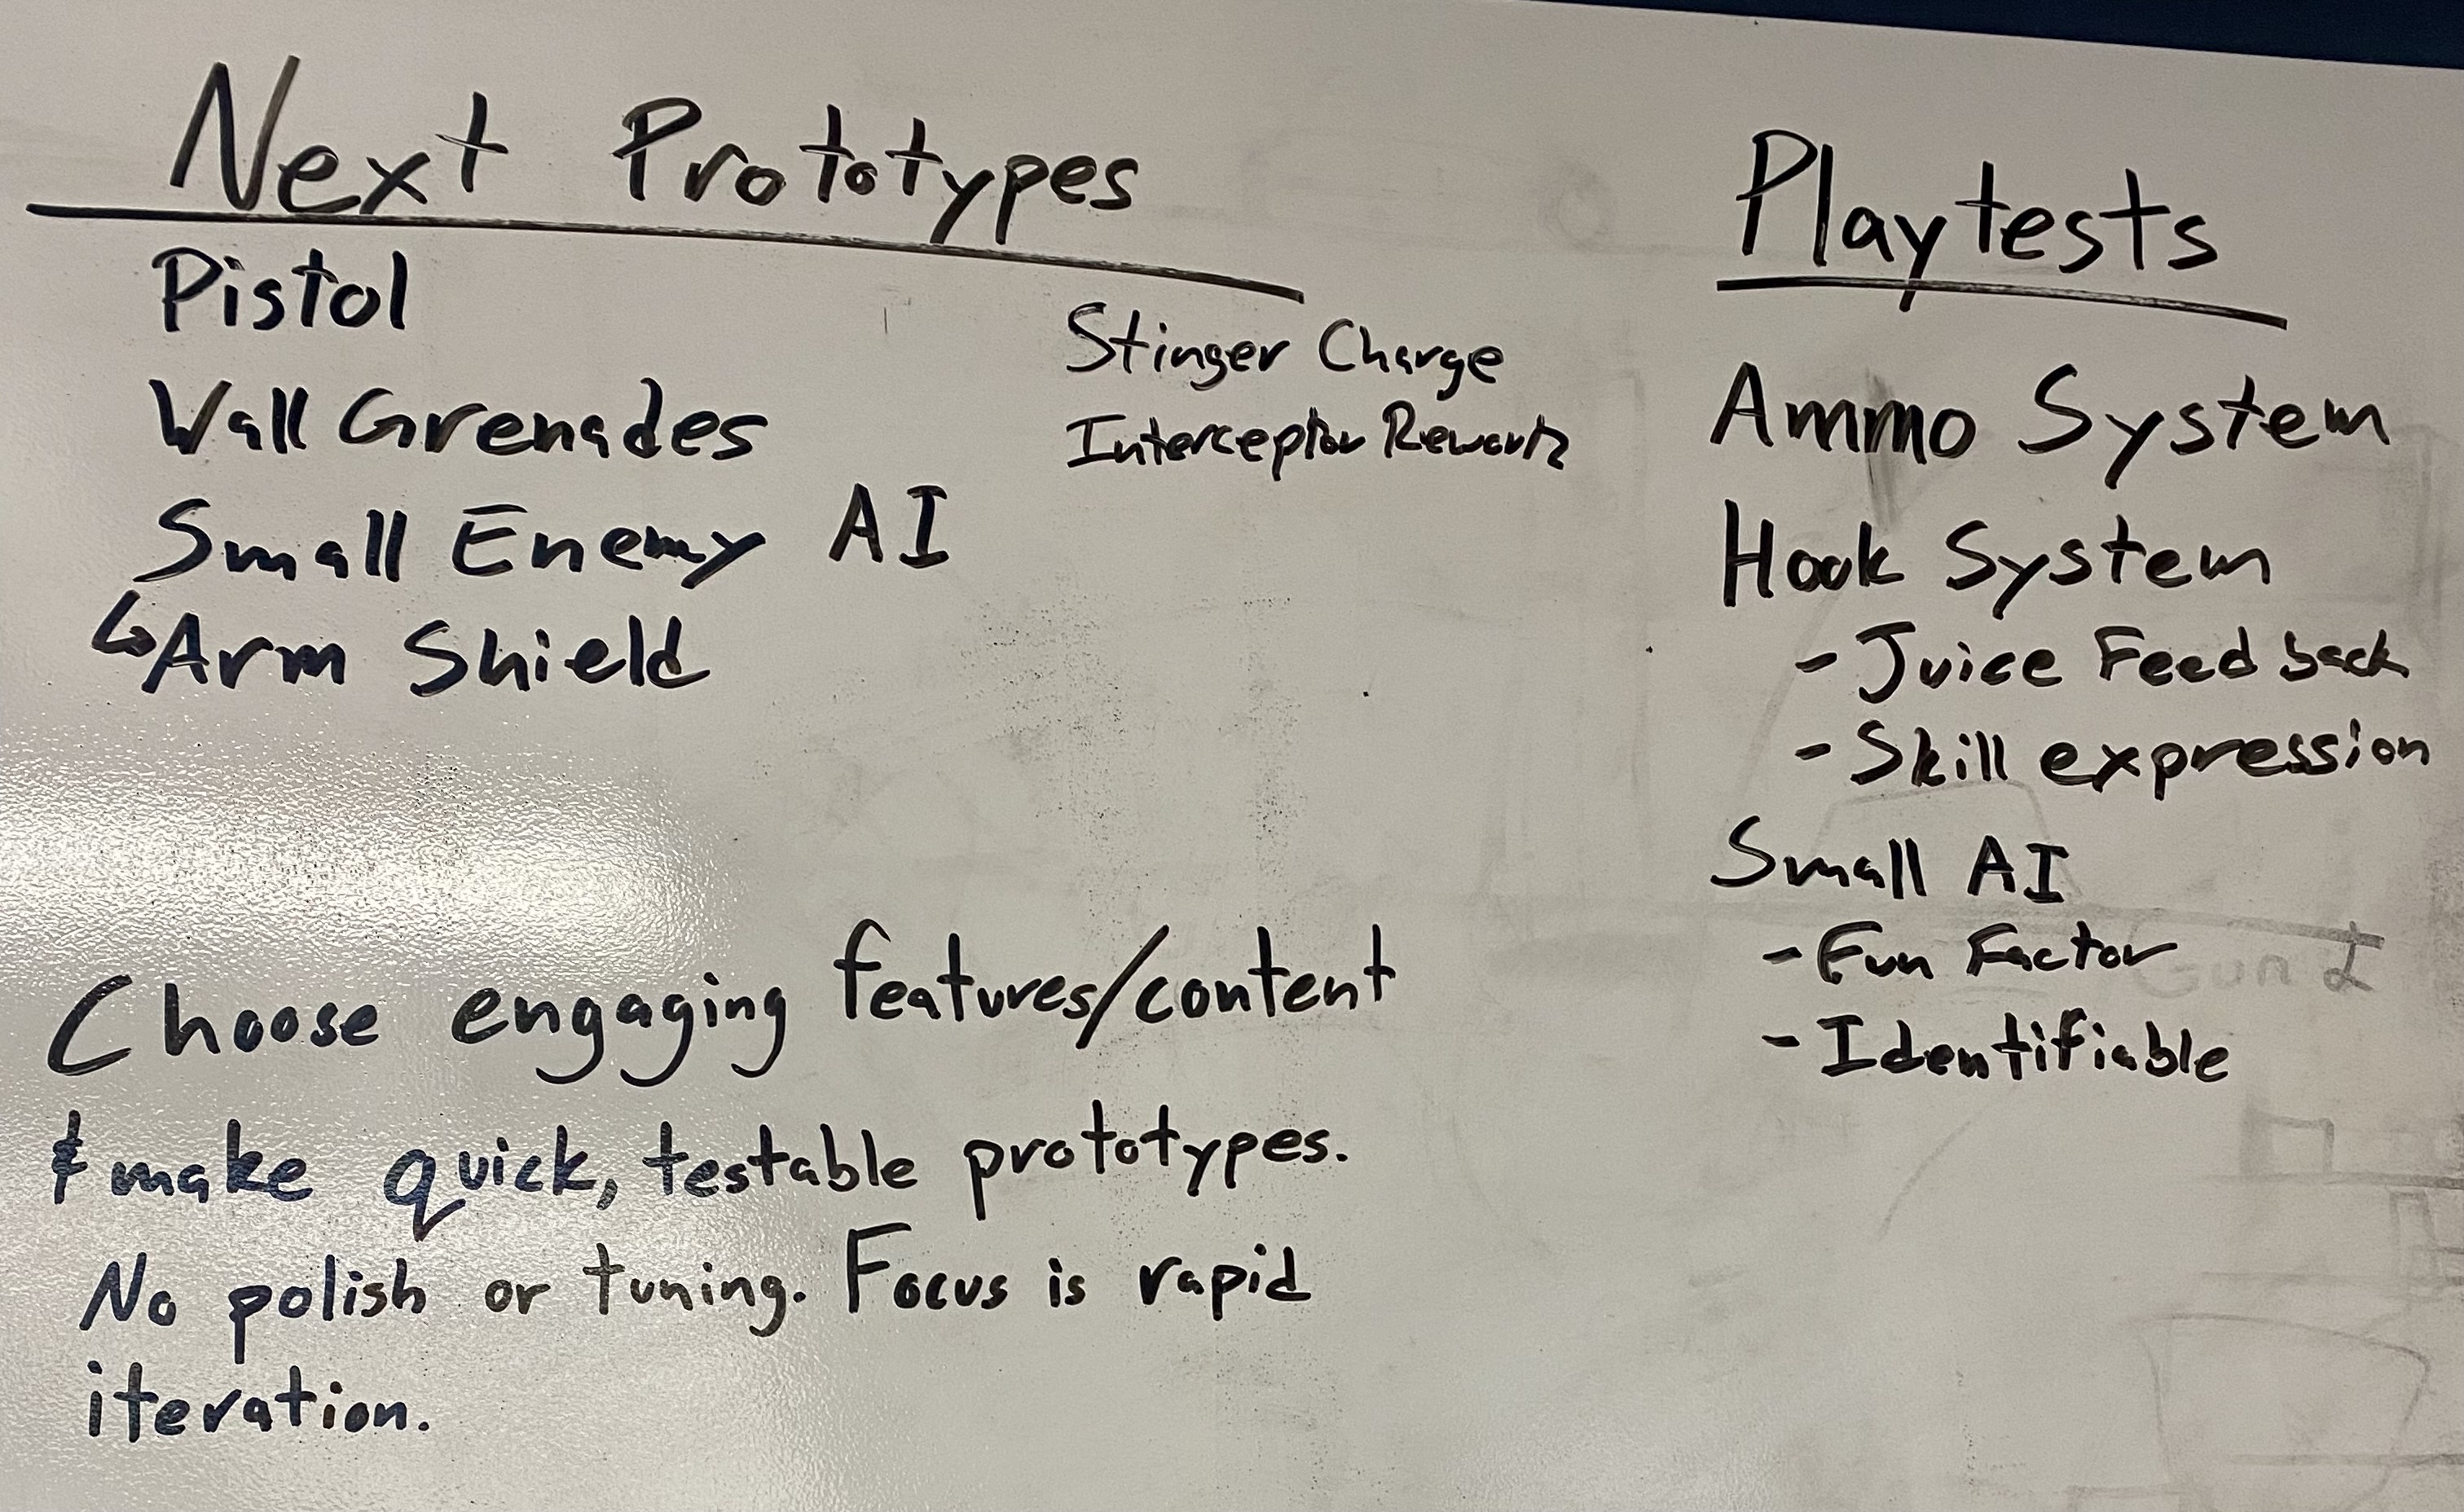 Next Prototypes
Pistol
Wall Grenades
Small Enemy AI
↳Arm Shield
Stinger Charge
Interceptor Rework
Choose engaging features/content
& make quick, testable prototypes.
No polish or tuning. Focus is rapid
iteration.
Playtests
Ammo System
Hook System
- Juice Feedback
- Skill expression
Small AI
- Fun Factor
- Identifiable
Gun